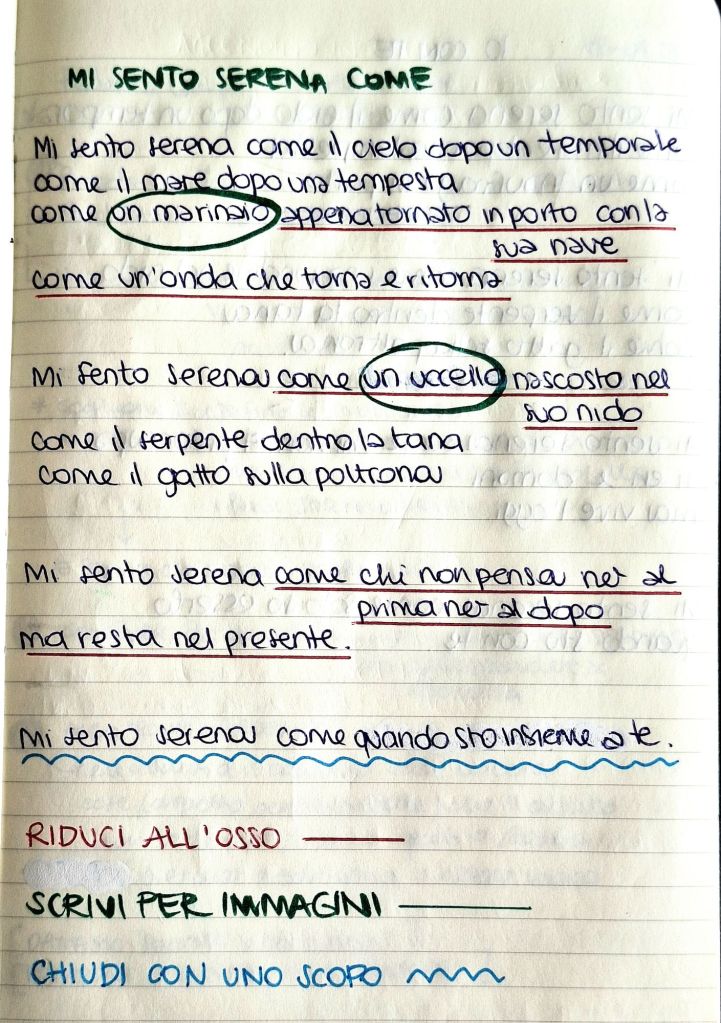 MI SENTO SERENA COME
Mi sento serena come il cielo dopo un temporale
come il mare dopo una tempesta
come un marinaio appena tornato in porto con la
sua nave
come un'onda che torna e ritorna
Mi sento serena come un uccello nascosto nel
suo nido
come il serpente dentro la tana
come il gatto sulla poltrona
Mi sento serena come chi non pensa nè al
prima nè al dopo
ma resta nel presente.
Mi sento serena come quando sto insieme a te.
RIDUCI ALL'OSSO
SCRIVI PER IMMAGINI
CHIUDI CON UNO SCOPO